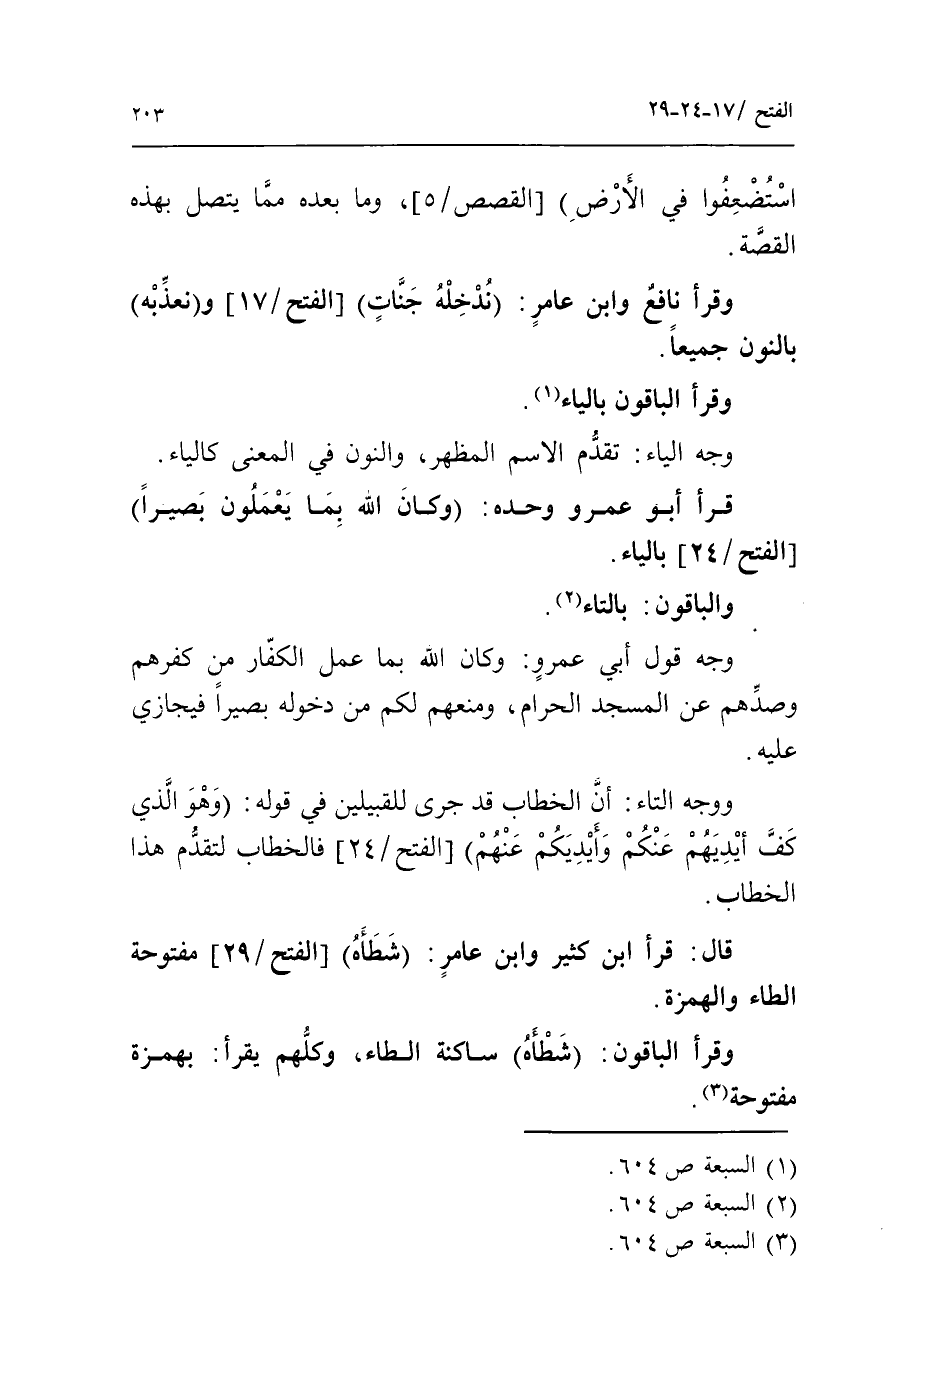 الفتح /١٧-٢٤-٢٩ ٢٠٣
اسْتُضْعِفُوا في الأَرْضِ) [القصص/٥]، وما بعده ممَّا يتصل بهذه
القصَّة.
وقرأ نافعٌ وابن عامرٍ: (نُدْخِلْهُ جَنَّاتٍ) [الفتح/١٧] و(نعذِّبْه)
بالنون جميعاً.
وقرأ الباقون بالياء(١).
وجه الياء: تقدُّم الاسم المظهر، والنون في المعنى كالياء.
قرأ أبو عمرو وحده: (وكانَ الله بِمَا يَعْمَلُون بَصيراً)
[الفتح/٢٤] بالياء.
والباقون: بالتاء(٢).
وجه قول أبي عمروٍ: وكان الله بما عمل الكفّار من كفرهم
وصدِّهم عن المسجد الحرام، ومنعهم لكم من دخوله بصيراً فيجازي
عليه.
ووجه التاء: أنَّ الخطاب قد جرى للقبيلين في قوله: (وَهْوَ الَّذي
كَفَّ أَيْدِيَهُمْ عَنْكُمْ وَأَيْدِيَكُمْ عَنْهُمْ) [الفتح/٢٤] فالخطاب لتقدُّم هذا
الخطاب.
قال: قرأ ابن كثير وابن عامرٍ: (شَطَأَهُ) [الفتح/٢٩] مفتوحة
الطاء والهمزة.
وقرأ الباقون: (شَطْأَهُ) ساكنة الطاء، وكلُّهم يقرأ: بهمزة
مفتوحة(٣).
(١) السبعة ص ٦٠٤.
(٢) السبعة ص ٦٠٤.
(٣) السبعة ص ٦٠٤.